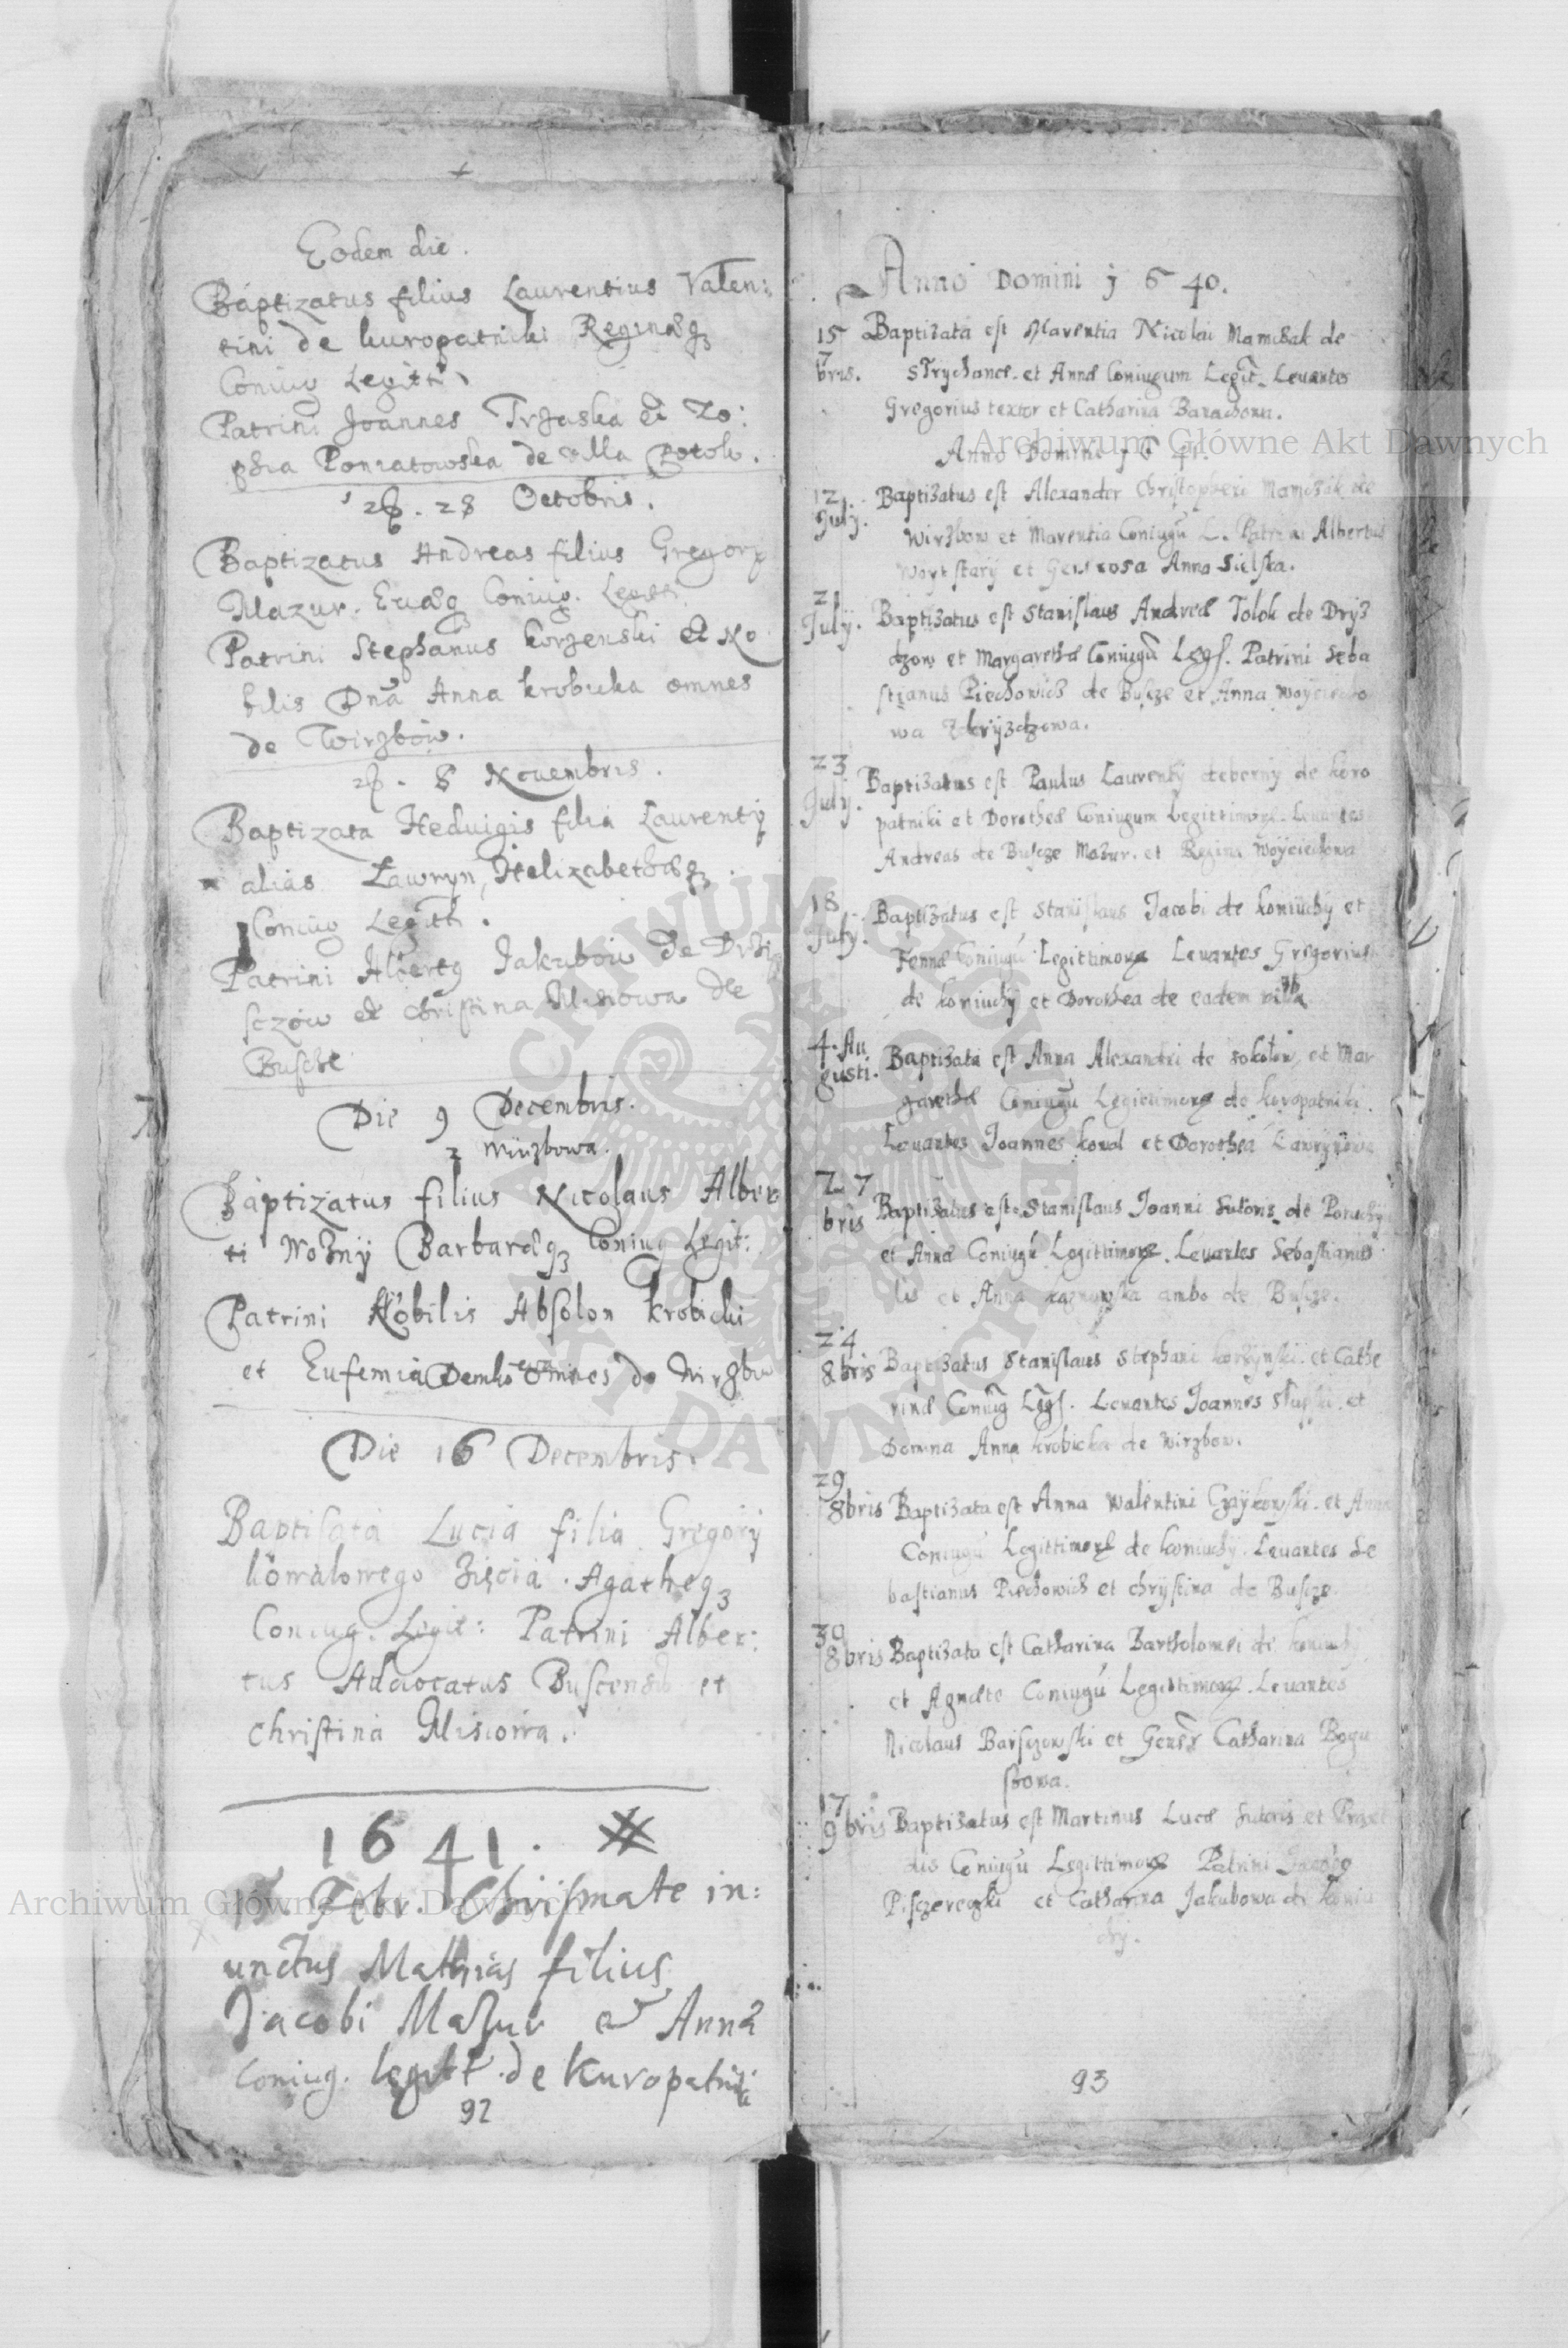 Eodem die.
Baptizatus filius Laurentius Valen:
tini de kuropatniki Reginæq3
Coniug Legitt
Patrini Joannes Trzaska et Zo:
phia Poniatowska de villa Potok.
28 Octobris.
Baptizatus Andreas filius Gregory
Mazur. Euæq3 Coniug. Legitt.
Patrini Stephanus korzenski et No
bilis Dna Anna krobicka omnes
de Wirzbow.
8 Nouembris.
Baptizata Heduigis filia Laurentij
alias Lawryn, Helizabethæq3
Coniug Legitt.
Patrini Albertg Jakubow de Drzi
sczow et Christina Misiowa de
Buscze
Die 9 Decembris.
z Wirzbowa.
Baptizatus filius Nicolaus Alber
ti Woznÿ Barbaræq3 Coniug Legit:
Patrini Nobilis Absolon krobicki
et Eufemia Demko omnes de Wirzbow
Die 16 Decembris.
Baptisata Lucia filia Gregorij
kowalowego Zięcia. Agatheq3
Coniug. Legit: Patrini Alber:
tus Aduocatus Buscensis et
Christina Misiowa.
1641.
15. Febr. Chrismate in:
unctus Mathias filius
Jacobi Mazur et Anna
Coniug. legitt. de Kuropatniki
92
Anno Domini j640.
15 Baptizata est Marentia Nicolai Mamczak de
7bris. Strychancæ. et Annæ Coniugum Legit. Leuantes
Gregorius textor et Catharina Baranowa.
Anno Domini j641.
12 Baptizatus est Alexander Christopheri Mamczak de
July. Wirzbow et Marentia Coniugū L. Patrini Albertus
Woyt starÿ et Generosa Anna Sielska.
21 July. Baptizatus est Stanislaus Andreæ Tolok de Drÿs
dzow et Margarethæ Coniugū Legs. Patrini Seba
stianus Piechowicz de Buscze et Anna Woÿciecho
wa
23 July. Baptizatus est Paulus Laurentÿ de koro
patniki et Dorotheæ Coniugum Legittimorz. Leuantes
Andreas de Buscze Mazur. et Regina Woÿciechowa
18 July. Baptizatus est Stanislaus Jacobi de koniuchÿ et
Fennæ Coniugū Legittimorz Leuantes Gregorius
de koniuchÿ et Dorothea de eadem villa
4. Au Baptizata est Anna Alexandri de Sokolow, et Mar
gusti. garethæ Coniugū Legittimorz de koropatniki.
Leuantes Joannes koual et Dorothea Lawrÿnowa
2 7bris Baptizatus est Stanislaus Joanni Sutoris de Poruchÿ
et Annæ Coniugū Legittimorz. Leuantes Sebastianus
et Anna ambo de Buscze.
24 8bris Baptizatus Stanislaus Stephani korzÿnski. et Cathe
rinæ Coniug Legs. Leuantes Joannes et
Domina Anna krobicka de Wirzbow.
29 8bris Baptizata est Anna Walentini Czaÿkowski. et Annæ
Coniugū Legittimorz de koniuchÿ. Leuantes Se
bastianus Piechowicz et Chrÿstina de Buscze.
30 8bris Baptizata est Catharina Bartholomei de koniuchÿ
et Agnæte Coniugū Legittimorz. Leuantes
Nicolaus Barsczowski et Genēr Catharina Bogu
szowa.
17 9bris Baptizatus est Martinus Lucæ Sutoris et Praxe
dis Coniugū Legittimorz Patrini Jacobg
Pisczereczki et Catharina Jakubowa de koniu
chÿ.
93
Archiwum Główne Akt Dawnych
Archiwum Główne Akt Dawnych
ARCHIWUM GŁÓWNE AKT DAWNYCH